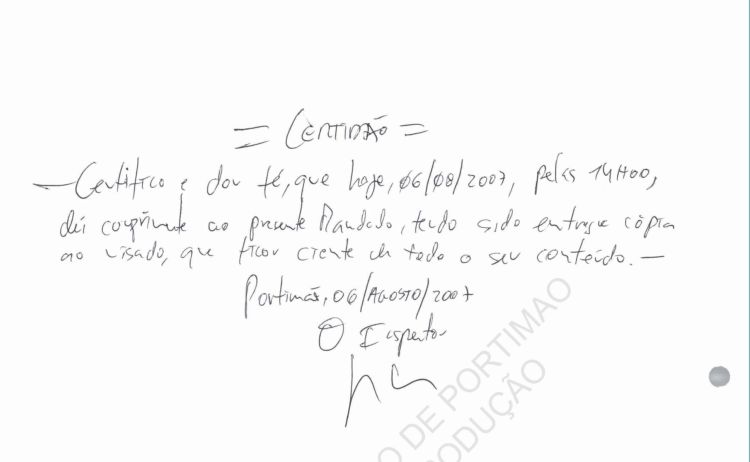 = CERTIDÃO =
— Certifico e dou fé, que hoje, 06/08/2007, pelas 14H00,
dei cumprimento ao presente Mandado, tendo sido entregue cópia
ao visado, que ficou ciente de todo o seu conteúdo. —
Portimão, 06/AGOSTO/2007
O Inspector
O DE PORTIMAO